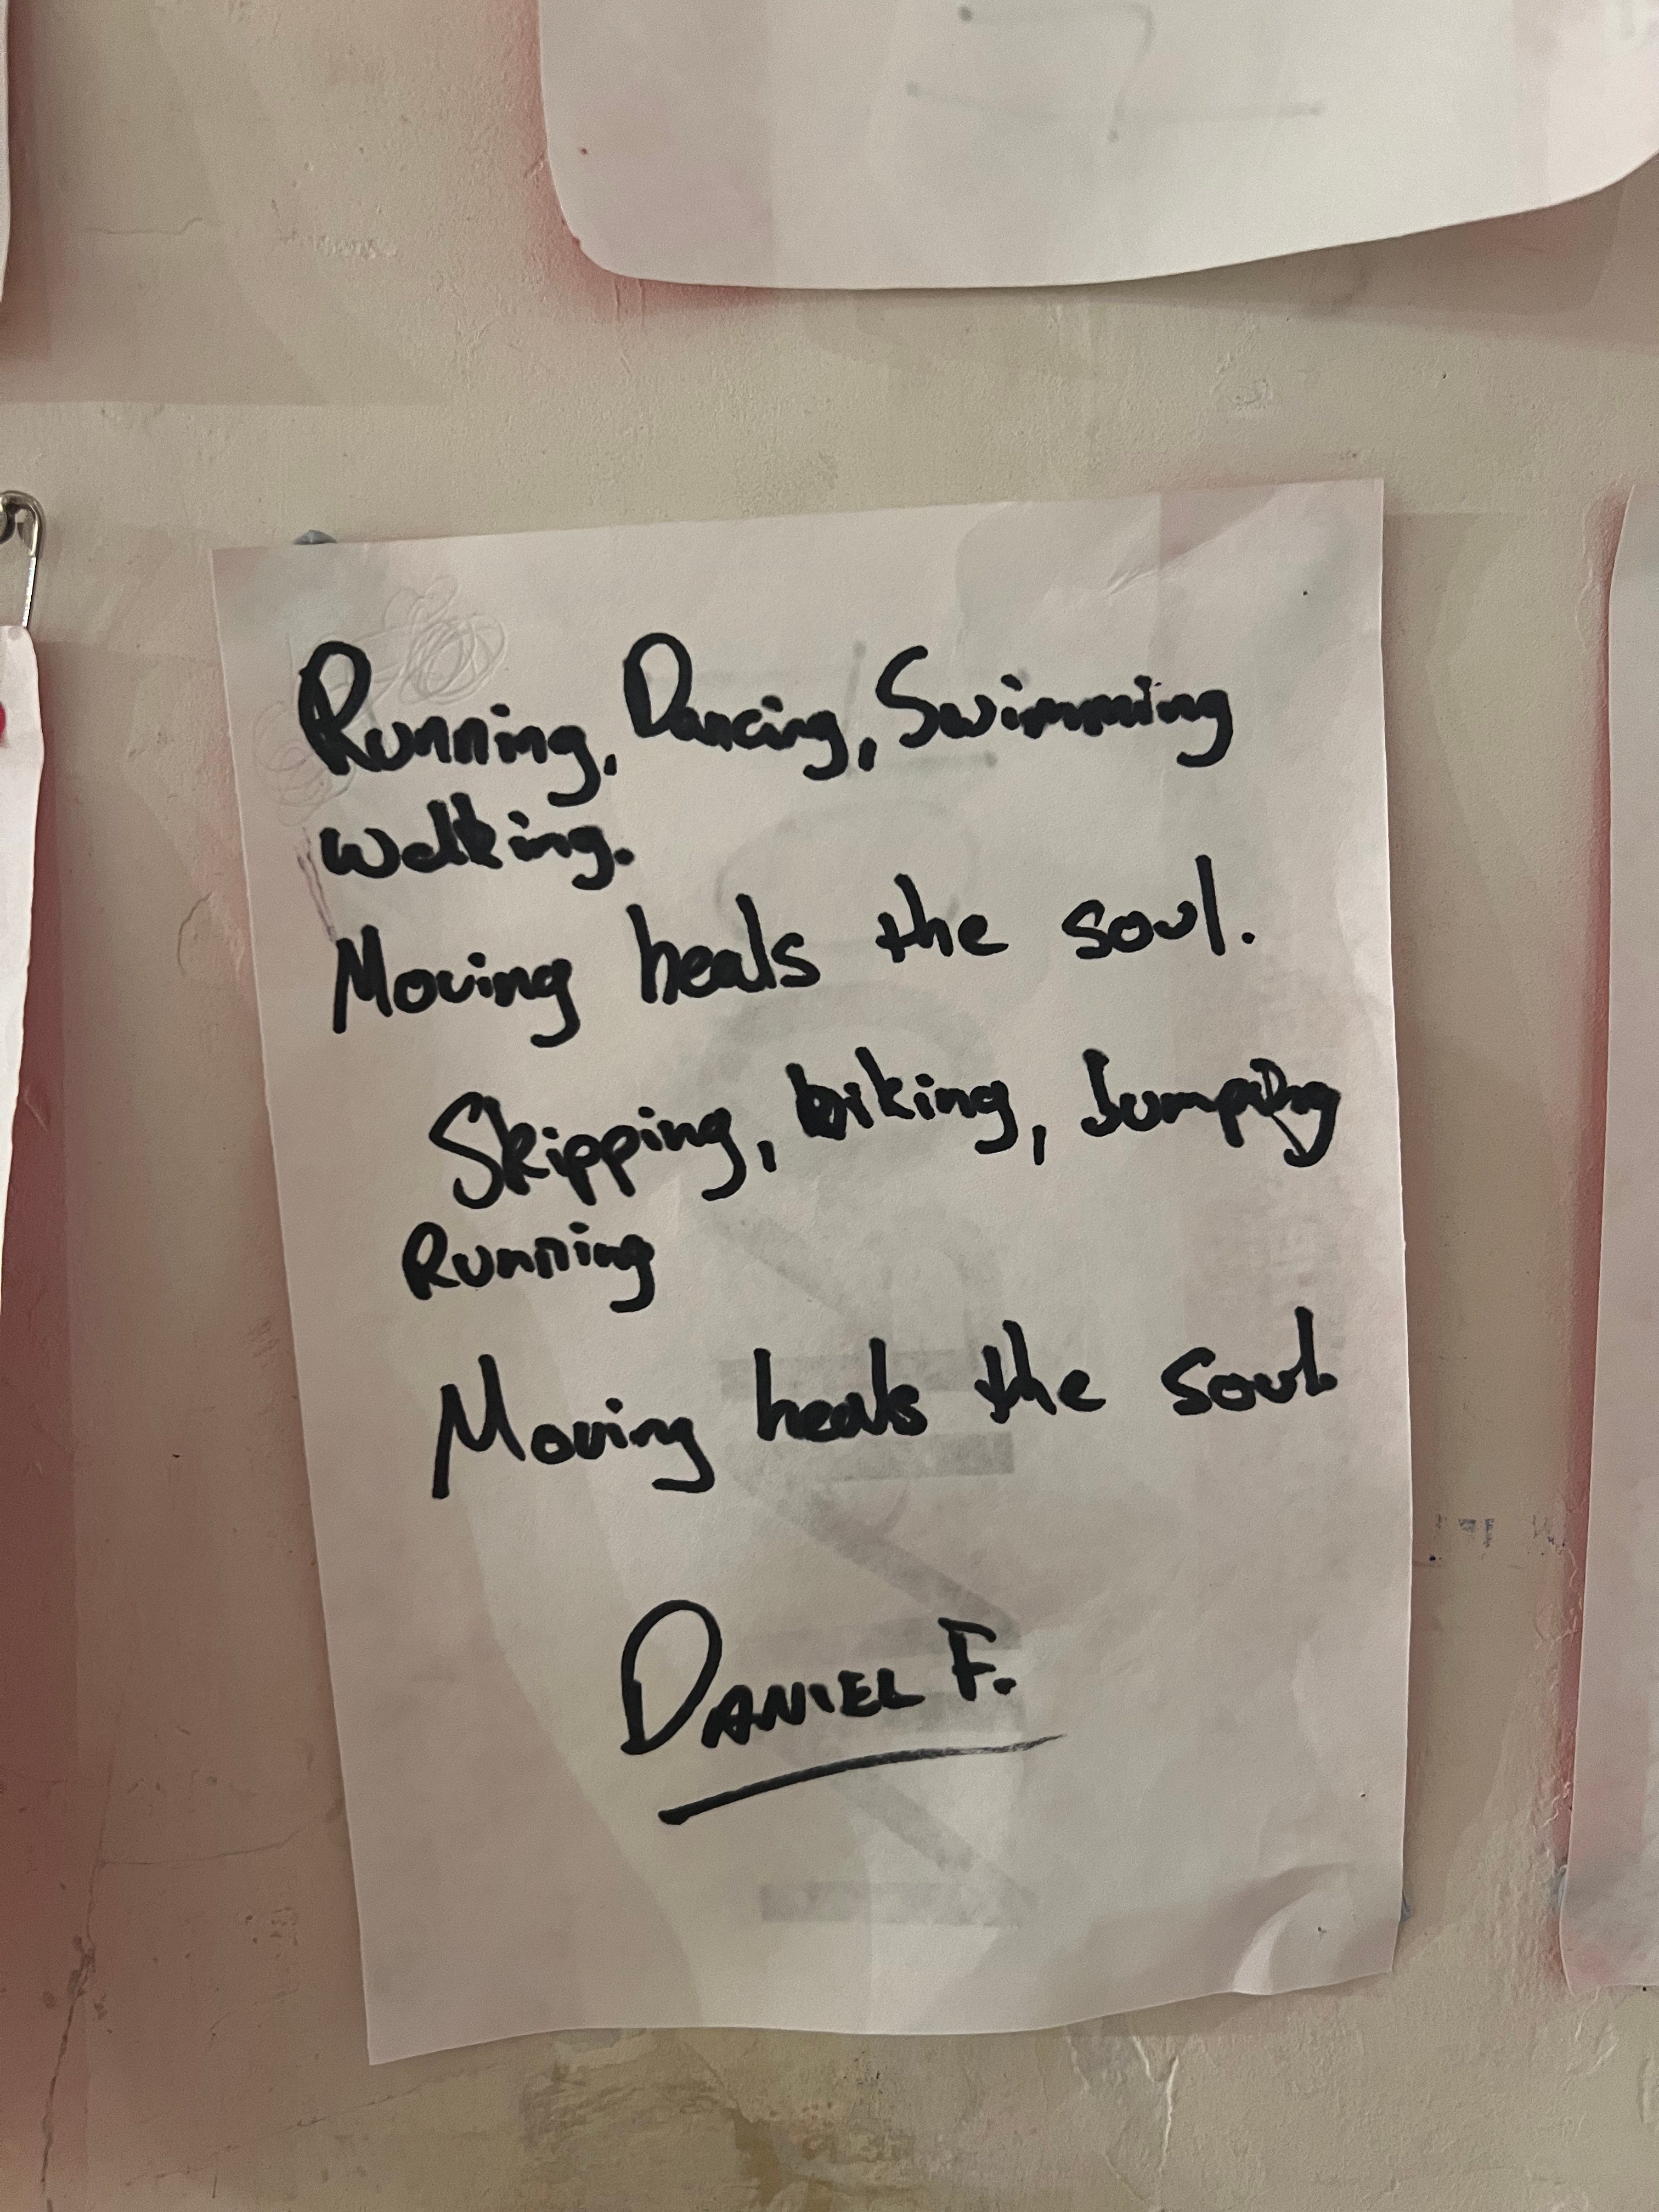 Running, Dancing, Swimming
walking.
Moving heals the soul.
Skipping, biking, Jumping
Running
Moving heals the soul.
DANIEL F.